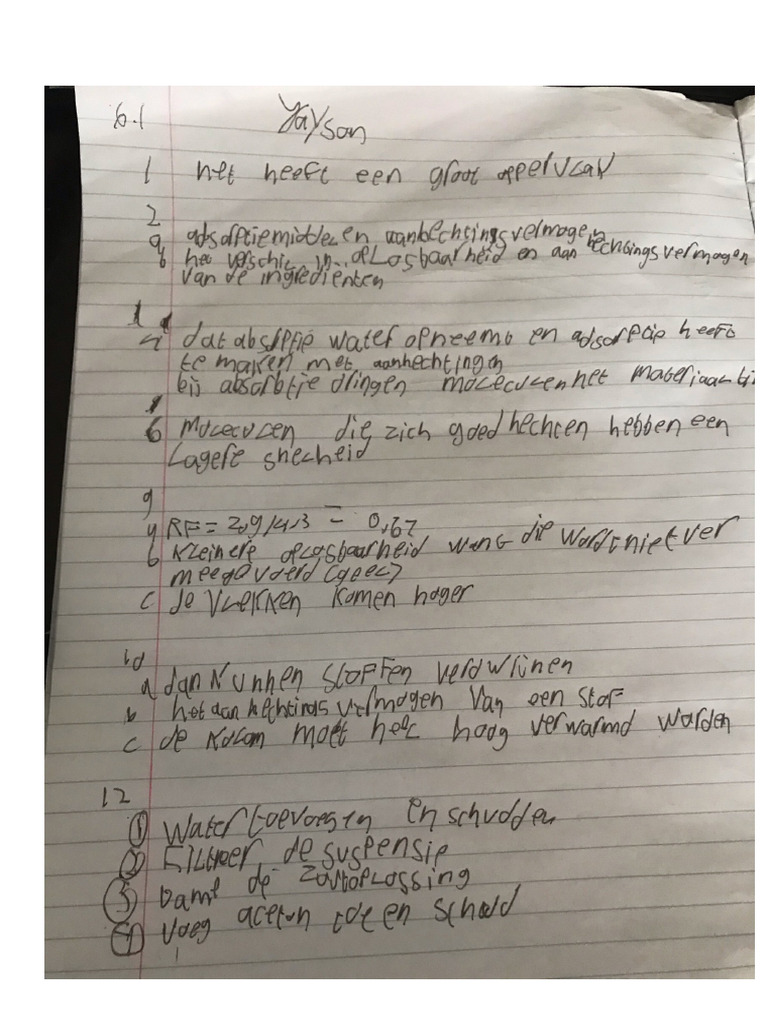 6.1 Yayson
1 het heeft een groot oppervlak
2
a adsorptiemiddelen, aanhechtingsvermogen
b het verschil in oplosbaarheid en aanhechtingsvermogen
van de ingredienten
4 dat absorptie water opneemt en adsorptie heeft
te maken met aanhechtingen
bij absorbtie dringen moleculen het materiaal bi
6 moleculen die zich goed hechten hebben een
lagere snelheid
9
a RF = 2,9/4,3 = 0,67
b kleinere oplosbaarheid want die wordt niet ver
meegevoerd (geel)
c de vlekken komen hoger
10
a dan kunnen stoffen verdwijnen
b het aanhechtings vermogen van een stof
c de kolom moet heel hoog verwarmd worden
12
① water toevoegen en schudden
② Filtreer de suspensie
③ Damp de zoutoplossing
④ voeg aceton toe en schud